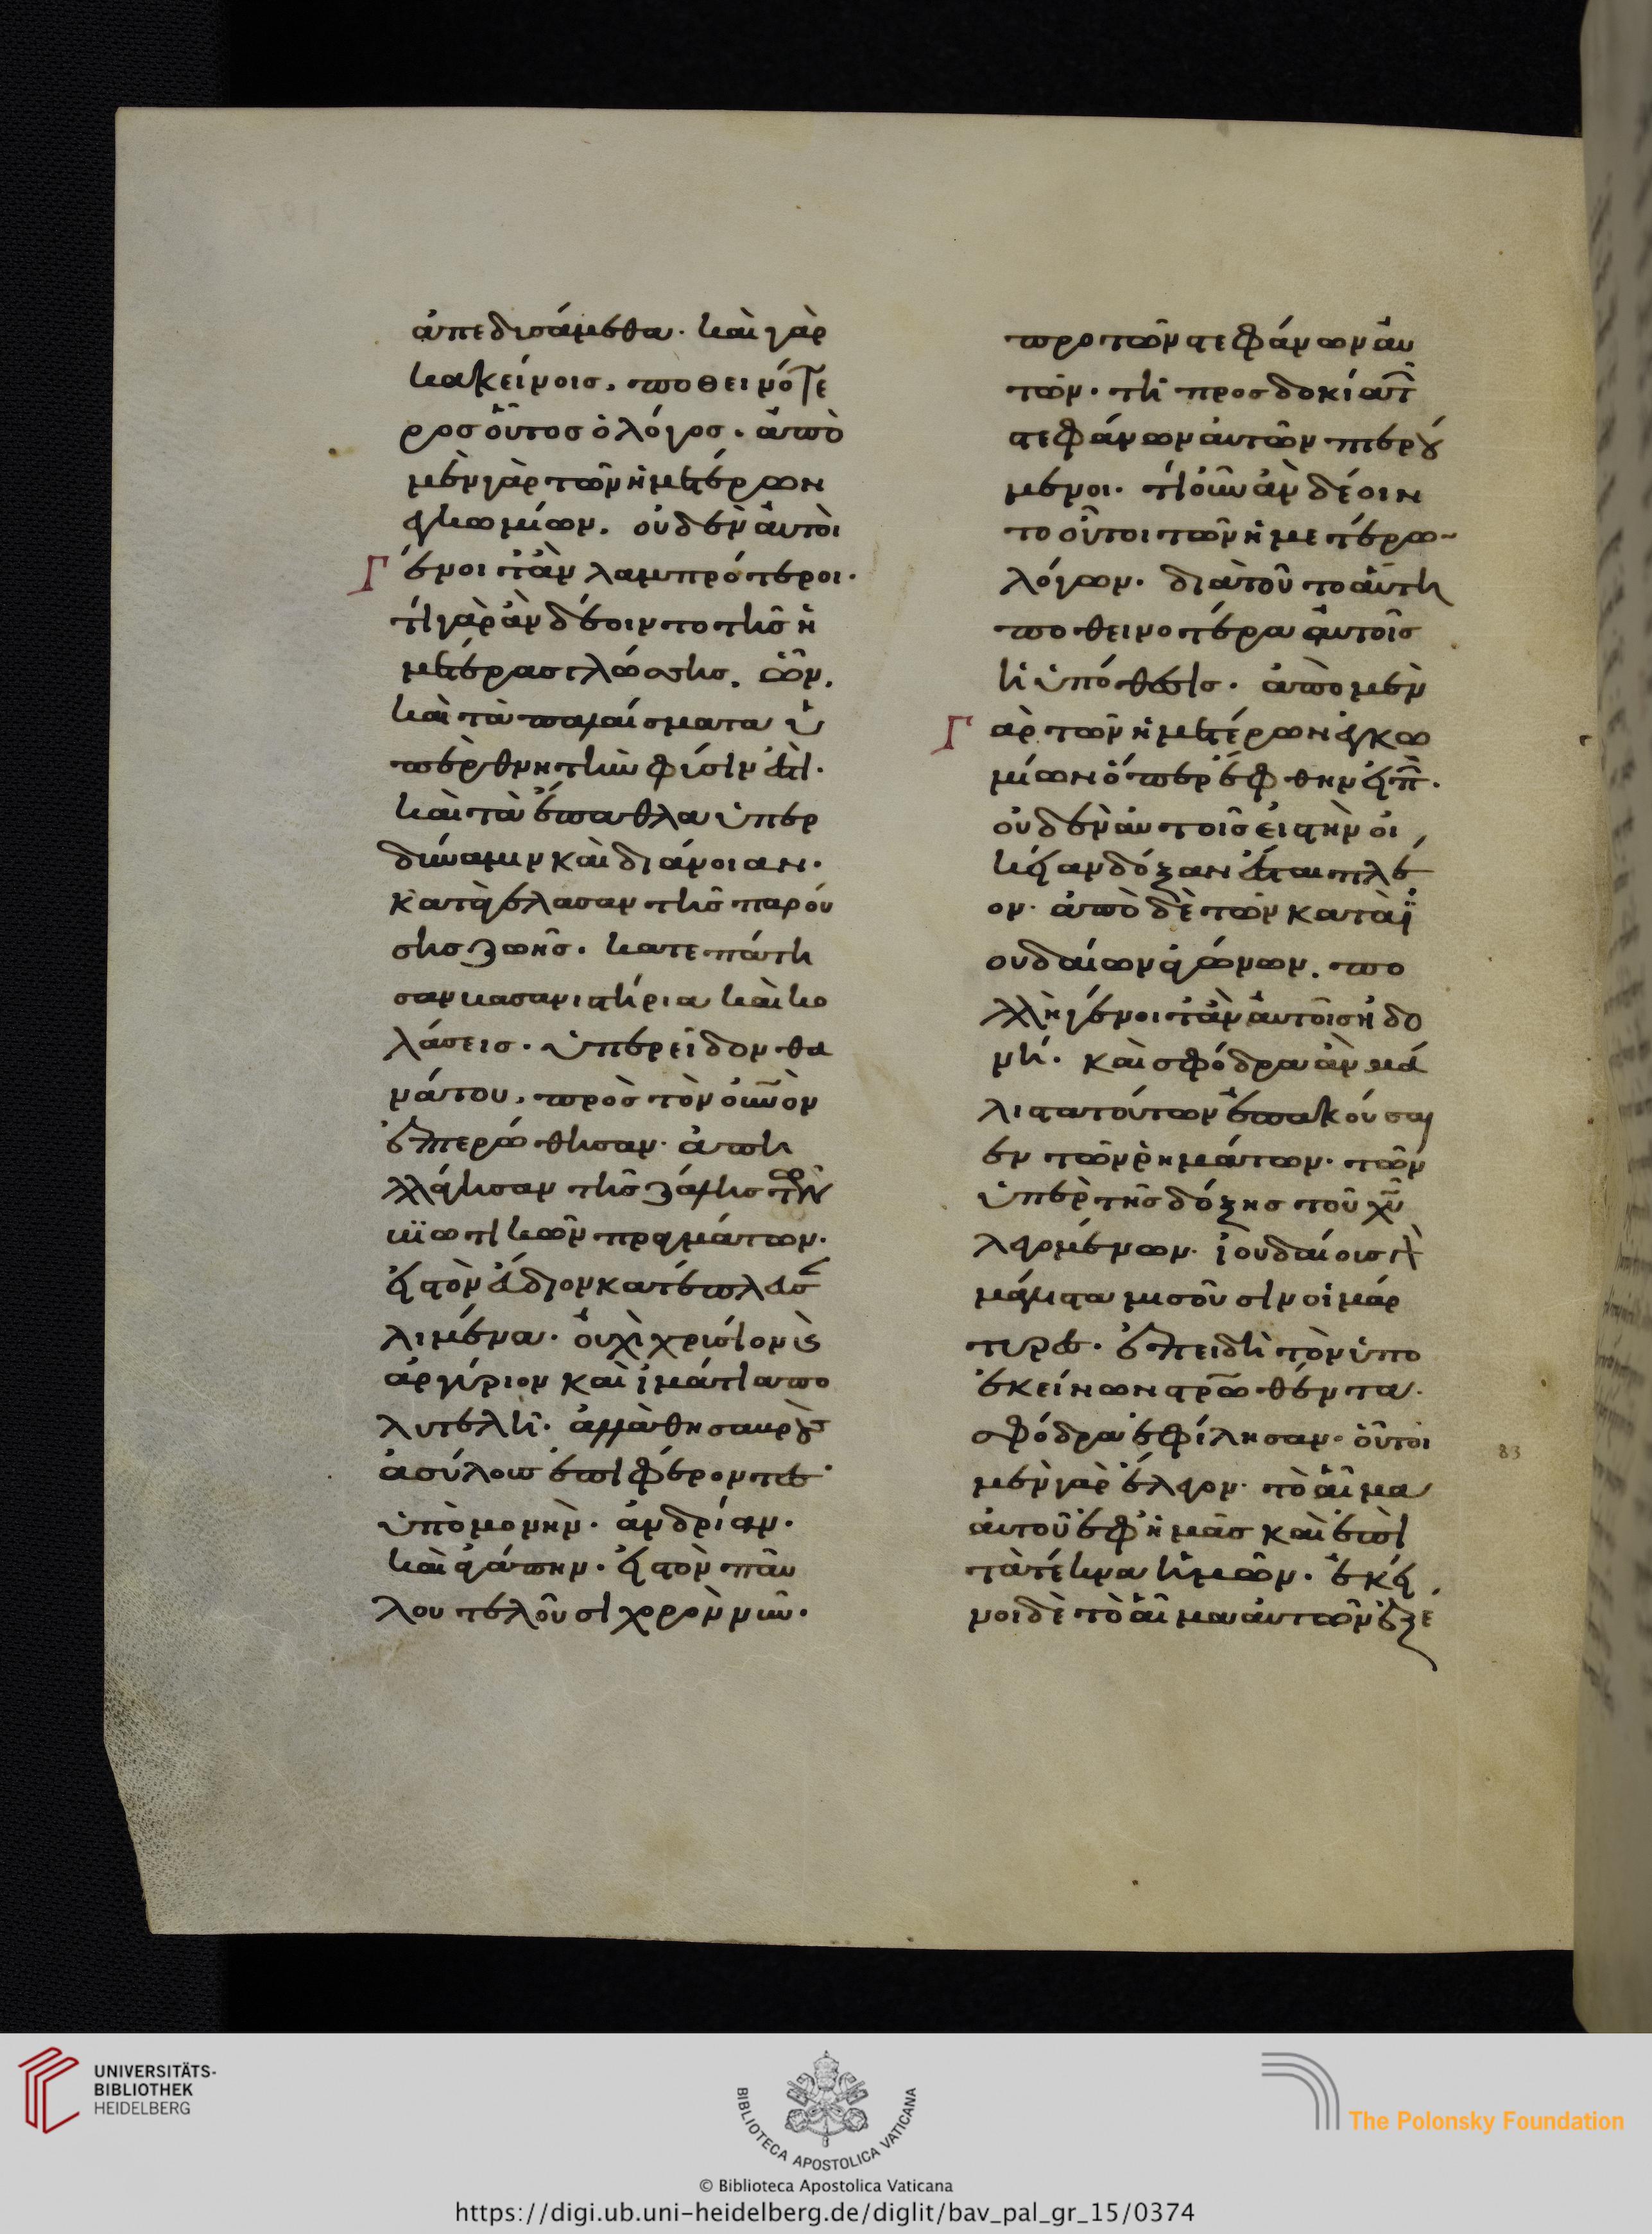 ἀπεδυσάμεθα· καὶ γὰρ
κακείνοις, ποθεινότε
ρος οὗτος ὁ λόγος· ἀπὸ
μὲν γὰρ τῶν ἡμετέρων
ἐγκωμίων, οὐδὲν αὐτοὶ
γένοιντ' ἂν λαμπρότεροι·
τί γὰρ ἂν δέοιντο τῆς ἡ
μετέρας γλώσσης, ὧν,
καὶ τὰ παλαίσματα ὑ
πὲρ θνητὴν φύσιν ἐστὶ·
καὶ τὰ ἔπαθλα ὑπὲρ
δύναμιν καὶ διάνοιαν·
κατεγέλασαν τῆς παρού
σης ζωῆς· κατεπάτη
σαν βασανιστήρια καὶ κο
λάσεις· ὑπερεῖδον θα
νάτου, πρὸς τὸν οὐνὸν
ἐπτερώθησαν· ἀπη
λλάγησαν τῆς ζάλης τῶν
βιωτικῶν πραγμάτων·
εἰς τὸν εὔδιον κατέπλευσαν
λιμένα· οὐχὶ χρυσίον καὶ
ἀργύριον καὶ ἱμάτια πο
λυτελῆ· ἀλλὰ θησαυροὺς
ἀσύλους ἐπιφέροντες·
ὑπομονὴν· ἀνδρίαν·
καὶ ἀγάπην· εἰς τὸν παύ
λου τελοῦσι χορὸν νῦν·
πρὸ τῶν στεφάνων αὐ
τῶν· τῆ προσδοκία τῶν
στεφάνων αὐτῶν πτερού
μενοι· τί οὖν ἂν δέοιν
το οὗτοι τῶν ἡμετέρων
λόγων· διὰ τοῦτο αὕτη
ποθεινοτέρα αὐτοῖς
ἡ ὑπόθεσις· ἀπὸ μὲν
γὰρ τῶν ἡμετέρων ἐγκω
μίων ὅπερ ἔφθην εἰπών·
οὐδὲν αὐτοῖς εἰς τὴν οἰ
κείαν δόξαν ἔσται πλέ
ον· ἀπὸ δὲ τῶν κατὰ ἰ
ουδαίων ἀγώνων, πο
λλὴ γένοιτ' ἂν αὐτοῖς ἡδο
νή· καὶ σφόδρα ἂν μά
λιστα τούτων ἐπακούσαι
εν τῶν ρημάτων· τῶν
ὑπὲρ τῆς δόξης τοῦ χῦ
λεγομένων· ἰουδαίοις γὰρ
μάλιστα μισοῦσιν οἱ μάρ
τυρες· ἐπειδὴ τὸν ὑπὸ
ἐκείνων σταυρωθέντα·
σφόδρα ἐφίλησαν· οὗτοι
μὲν γὰρ ἔλεγον· τὸ αἷμα
αὐτοῦ ἐφ' ἡμᾶς καὶ ἐπὶ
τὰ τέκνα ἡμῶν· ἐκεῖ
νοι δὲ τὸ αἷμα αὐτῶν ἐξέ
83
UNIVERSITÄTS-
BIBLIOTHEK
HEIDELBERG
BIBLIOTECA APOSTOLICA VATICANA
The Polonsky Foundation
© Biblioteca Apostolica Vaticana
https://digi.ub.uni-heidelberg.de/diglit/bav_pal_gr_15/0374